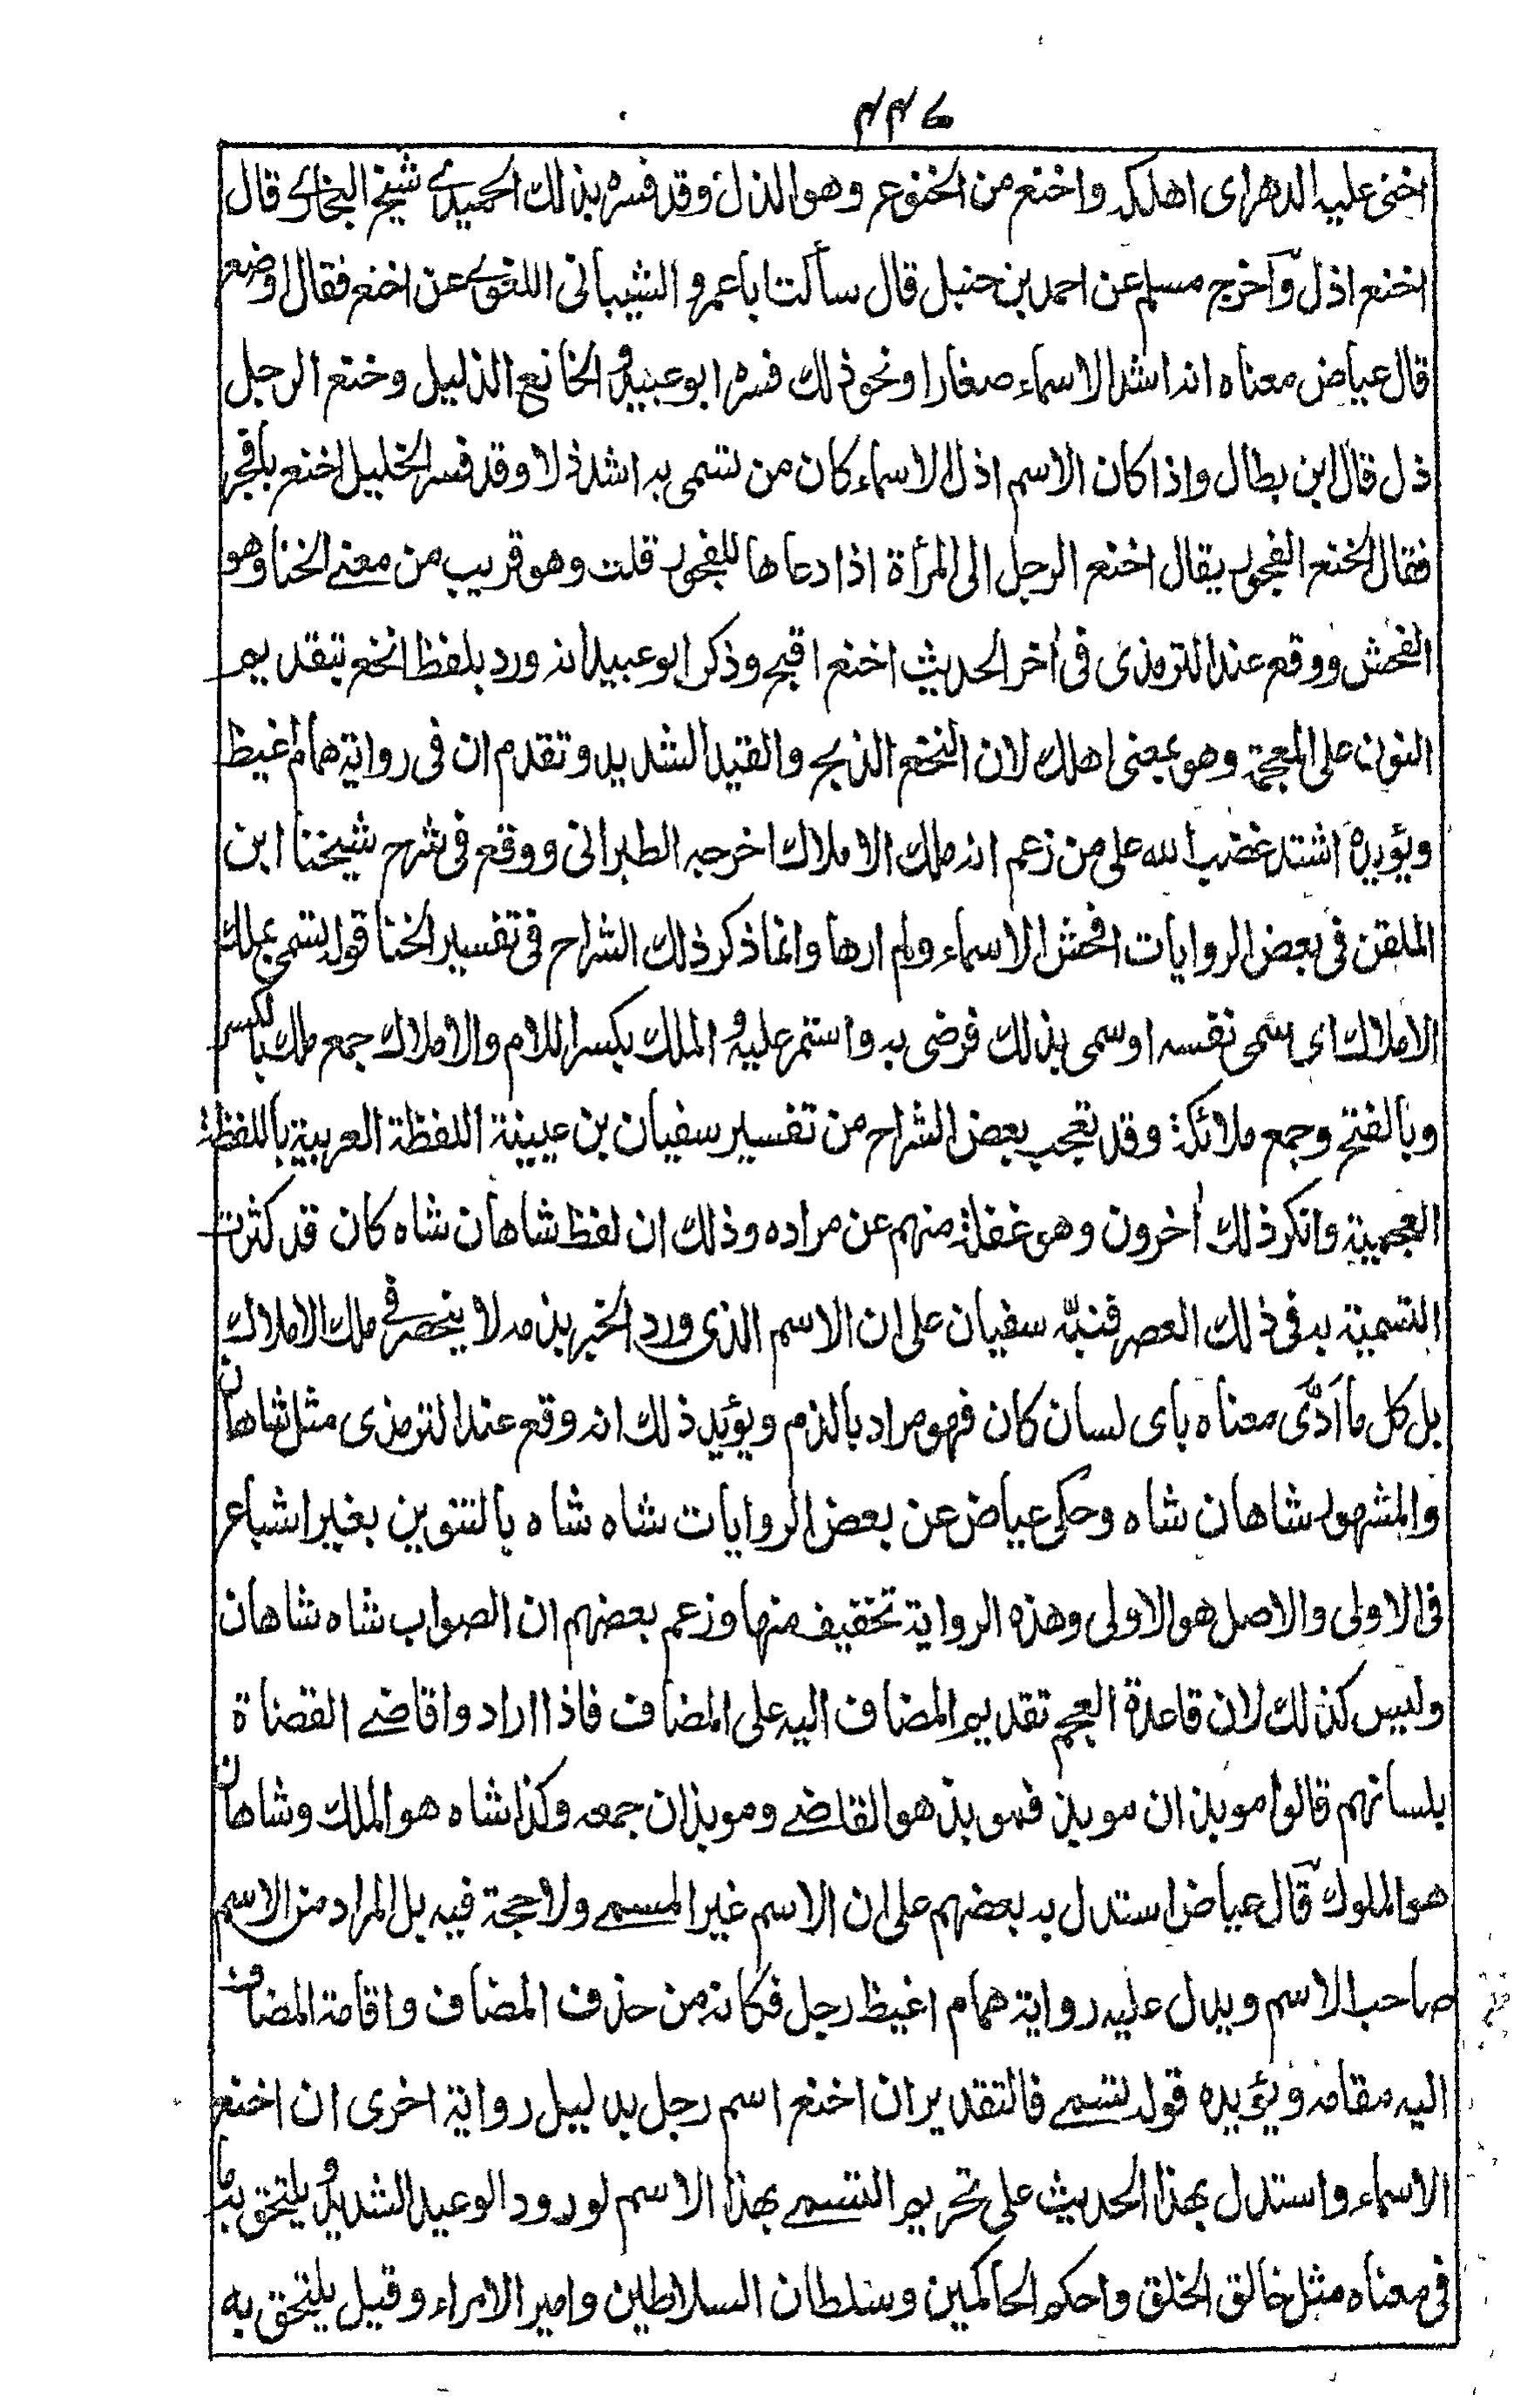 ٤٤٦
اخنى عليه الدهر اى اهلكه واخنع من الخنوع وهو الذل وقد فسره بذلك الحميدي شيخ البخاري قال
اخنع اذل وآخرج مسلم عن احمد بن حنبل قال سألت ابا عمرو الشيبانى اللغوي عن اخنع فقال اوضع
قال عياض معناه انه اشد الاسماء صغارا ونحو ذلك فسره ابو عبيد و الخانع الذليل وخنع الرجل
ذل قال ابن بطال واذا كان الاسم اذل الاسماء كان من تسمى به اشد ذلا وقد فسر الخليل اخنع بافجر
فقال الخنع الفجور يقال اخنع الرجل الى المرأة اذا دعاها للفجور قلت وهو قريب من معنى الخنا وهو
الفحش ووقع عند الترمذى فى آخر الحديث اخنع اقبح وذكر ابو عبيد انه ورد بلفظ انخع بتقديم
النون على المعجمة وهو بمعنى اهلك لان النخع الذبح والقتل الشديد وتقدم ان فى رواية همام اغيظ
ويؤيده اشتد غضب الله على من زعم انه ملك الاملاك اخرجه الطبرانى ووقع فى شرح شيخنا ابن
الملقن فى بعض الروايات افحش الاسماء ولم ارها وانما ذكر ذلك الشراح فى تفسير الخنا قوله تسمى بملك
الاملاك اي سمى نفسه او سمى بذلك فرضى به واستمر عليه و الملك بكسر اللام والاملاك جمع ملك بالكسر
وبالفتح وجمع ملائكة وقد تعجب بعض الشراح من تفسير سفيان بن عيينة اللفظة العربية باللفظة
العجمية وانكر ذلك آخرون وهو غفلة منهم عن مراده وذلك ان لفظ شاهان شاه كان قد كثرت
التسمية به فى ذلك العصر فنبّه سفيان على ان الاسم الذى ورد الخبر بذمه لا ينحصر فى ملك الاملاك
بل كل ما أدّى معناه باى لسان كان فهو مراد بالذم ويؤيد ذلك انه وقع عند الترمذى مثل شاهان
والمشهور شاهان شاه وحكى عياض عن بعض الروايات شاه شاه بالتنوين بغير اشباع
فى الاولى والاصل هو الاولى وهذه الرواية تخفيف منها وزعم بعضهم ان الصواب شاه شاهان
وليس كذلك لان قاعدة العجم تقديم المضاف اليه على المضاف فاذا ارادوا قاضى القضاة
بلسانهم قالوا موبذان موبذ فموبذ هو القاضى وموبذان جمعه وكذا شاه هو الملك وشاهان
هو الملوك قال عياض استدل به بعضهم على ان الاسم غير المسمى ولا حجة فيه بل المراد من الاسم
صاحب الاسم ويدل عليه رواية همام اغيظ رجل فكانه من حذف المضاف واقامة المضاف
اليه مقامه ويؤيده قوله تسمى فالتقدير ان اخنع اسم رجل بدليل رواية اخرى ان اخنع
الاسماء واستدل بهذا الحديث على تحريم التسمى بهذا الاسم لورود الوعيد الشديد و يلتحق به ما
فى معناه مثل خالق الخلق واحكم الحاكمين وسلطان السلاطين وامير الامراء وقيل يلتحق به